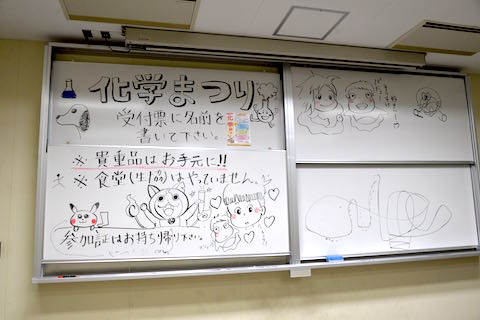 化学まつり
受付票に名前を
書いて下さい。
※ 貴重品はお手元に!!
※ 食堂(生協)はやっていません。
参加証はお持ち帰り下さい。